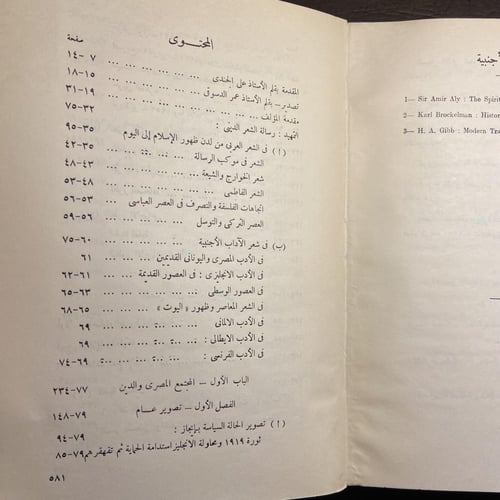 المحتوى
صفحة
المقدمة بقلم الأستاذ على الجندى ... ... ... ... ... ٧-١٤
تصدير – بقلم الأستاذ عمر الدسوقى ... ... ... ... ١٥-١٨
مقدمة المؤلف ... ... ... ... ... ... ... ١٩-٣١
التمهيد : رسالة الشعر الدينى : ٣٢-٧٥
( ا ) فى الشعر العربى من لدن ظهور الإسلام إلى اليوم ٣٥-٩٥
الشعر فى موكب الرسالة ... ... ... ... ٣٥-٤٢
شعر الخوارج والشيعة ... ... ... ... ٤٣-٤٨
الشعر الفاطمى ... ... ... ... ٤٨-٥٣
اتجاهات الفلسفة والتصرف فى العصر العباسى ٥٣-٥٦
العصر التركى والتوسل ... ... ... ... ٥٦-٥٩
(ب) فى شعر الآداب الأجنبية ... ... ... ... ٦٠-٧٥
فى الأدب المصرى واليونانى القديمين ... ... ... ٦١
فى الأدب الانجليزى : فى العصور القديمة ... ... ٦١-٦٢
فى العصور الوسطى ... ... ... ... ٦٣-٦٥
فى الشعر المعاصر وظهور « اليوت » ... ... ... ٦٥-٦٨
فى الأدب الالمانى ... ... ... ... ... ٦٩
فى الأدب الايطالى : ... ... ... ... ... ٦٩
فى الأدب الفرنسى : ... ... ... ... ... ٦٩-٧٤
الباب الأول – المجتمع المصرى والدين ٧٧-٢٣٤
الفصل الأول – تصوير عــام ... ... ... ٧٩-١٤٨
( ا ) تصوير الحالة السياسة بـإيجاز : ٧٩-٩٤
ثورة ١٩١٩ ومحاولة الانجليز استدامة الحماية ثم تقهقرهم ٧٩-٨٥
٥٨١
أجنبية
1— Sir Amir Aly : The Spirit
2— Karl Brockelman : Histor
3— H. A. Gibb : Modern Tra